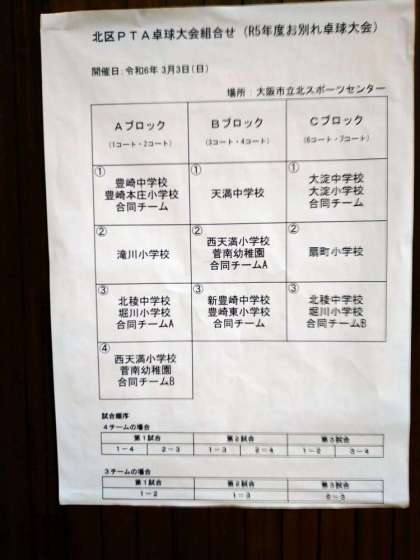 北区ＰＴＡ卓球大会組合せ（R5年度お別れ卓球大会）
開催日：令和6年 3月3日（日）
場所 ：大阪市立北スポーツセンター
Ａブロック
（1コート・2コート）
Ｂブロック
（3コート・4コート）
Ｃブロック
（6コート・7コート）
①
豊崎中学校
豊崎本庄小学校
合同チーム
①
天満中学校
①
大淀中学校
大淀小学校
合同チーム
②
滝川小学校
②
西天満小学校
菅南幼稚園
合同チームA
②
扇町小学校
③
北稜中学校
堀川小学校
合同チームA
③
新豊崎中学校
豊崎東小学校
合同チーム
③
北稜中学校
堀川小学校
合同チームB
④
西天満小学校
菅南幼稚園
合同チームB
試合順序
４チームの場合
第１試合 第２試合 第３試合
１－４ ２－３ １－３ ２－４ １－２ ３－４
３チームの場合
１－２ １－３ ２－３